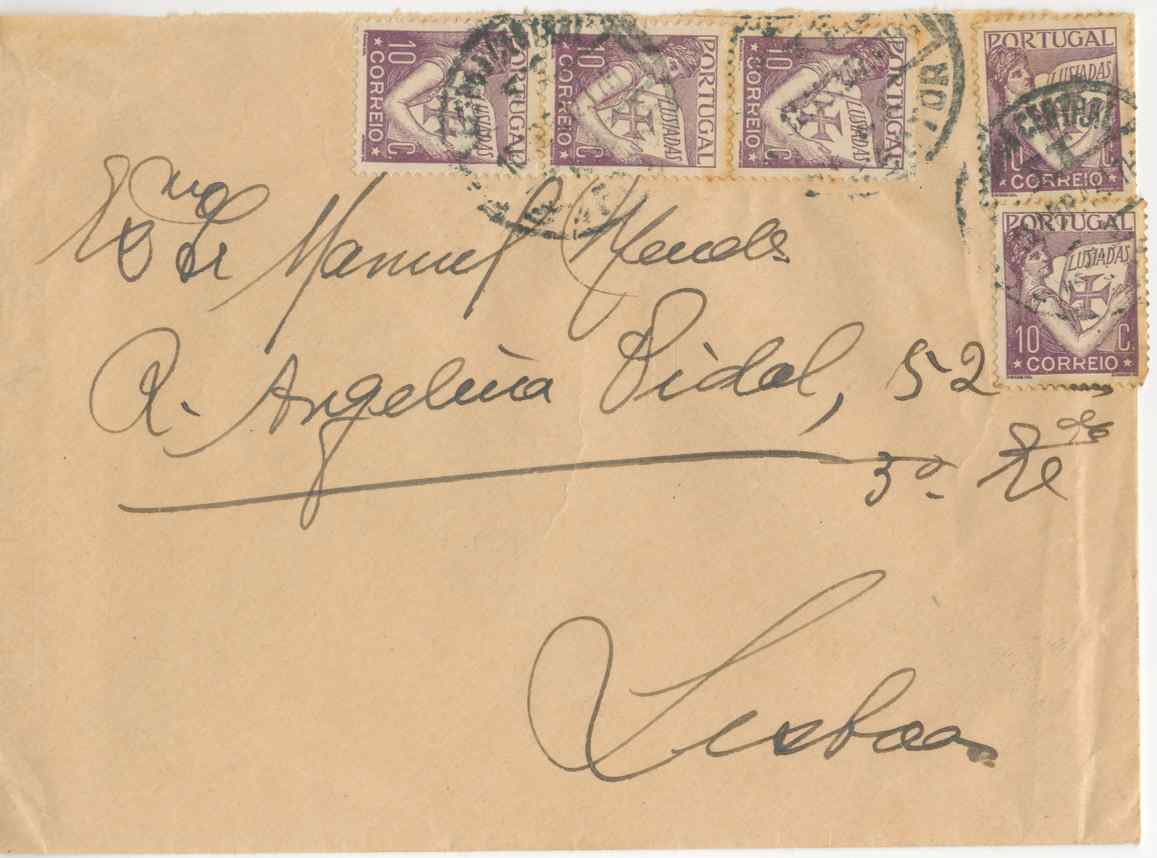 10 C.
CORREIO
PORTUGAL
LUSIADAS
10 C.
CORREIO
PORTUGAL
LUSIADAS
10 C.
CORREIO
PORTUGAL
LUSIADAS
PORTUGAL
LUSIADAS
10 C.
CORREIO
PORTUGAL
LUSIADAS
10 C.
CORREIO
CENTRAL
Exmo Sr Manuel Mendes
R. Angelina Vidal, 52
3º
Lisboa